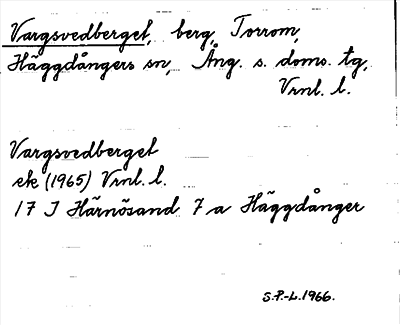 Vargsvedberget, berg, Torrom,
Häggdångers sn, Ång. s. doms. tg,
Vrnl. l.
Vargsvedberget
ek (1965) Vrnl. l.
17 J Härnösand 7 a Häggdånger
S.P.-L. 1966.